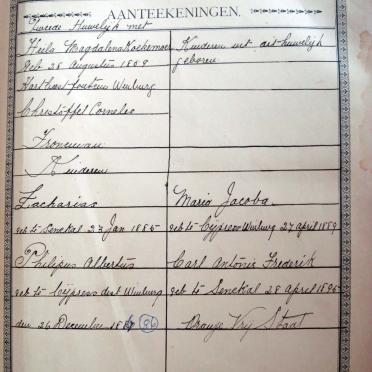 AANTEEKENINGEN.
Tweede Huwelijk met
Heila Magdalena Koekemoer
Kinderen uit dit huwelijk
geb 28 Augustus 1859
geboren
Hartbeestfontein Winburg
Christoffel Cornelis
Froneman
Kinderen
Zacharias
Maria Jacoba
geb te Senekal 27 Jan 1885
geb te Cypress Winburg 27 april 1889
Philipus Albertus
Carl Antonie Frederik
geb te Cypress dist Winburg
geb te Senekal 28 april 1895
den 26 December 188
(86)
Oranje Vrij Staat